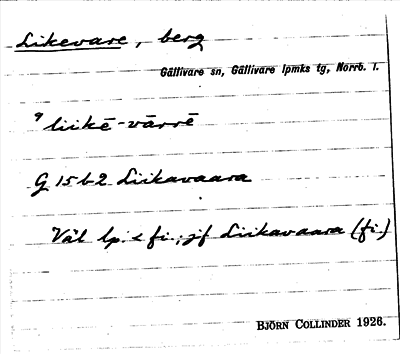 Likevare, berg
Gällivare sn, Gällivare lpmks tg, Norrb. l.
9 liikē-vārrē
G 15 b2 Liikavaara
Väl lp. < fi.; jf Liikavaara (fi.)
BJÖRN COLLINDER 1926.